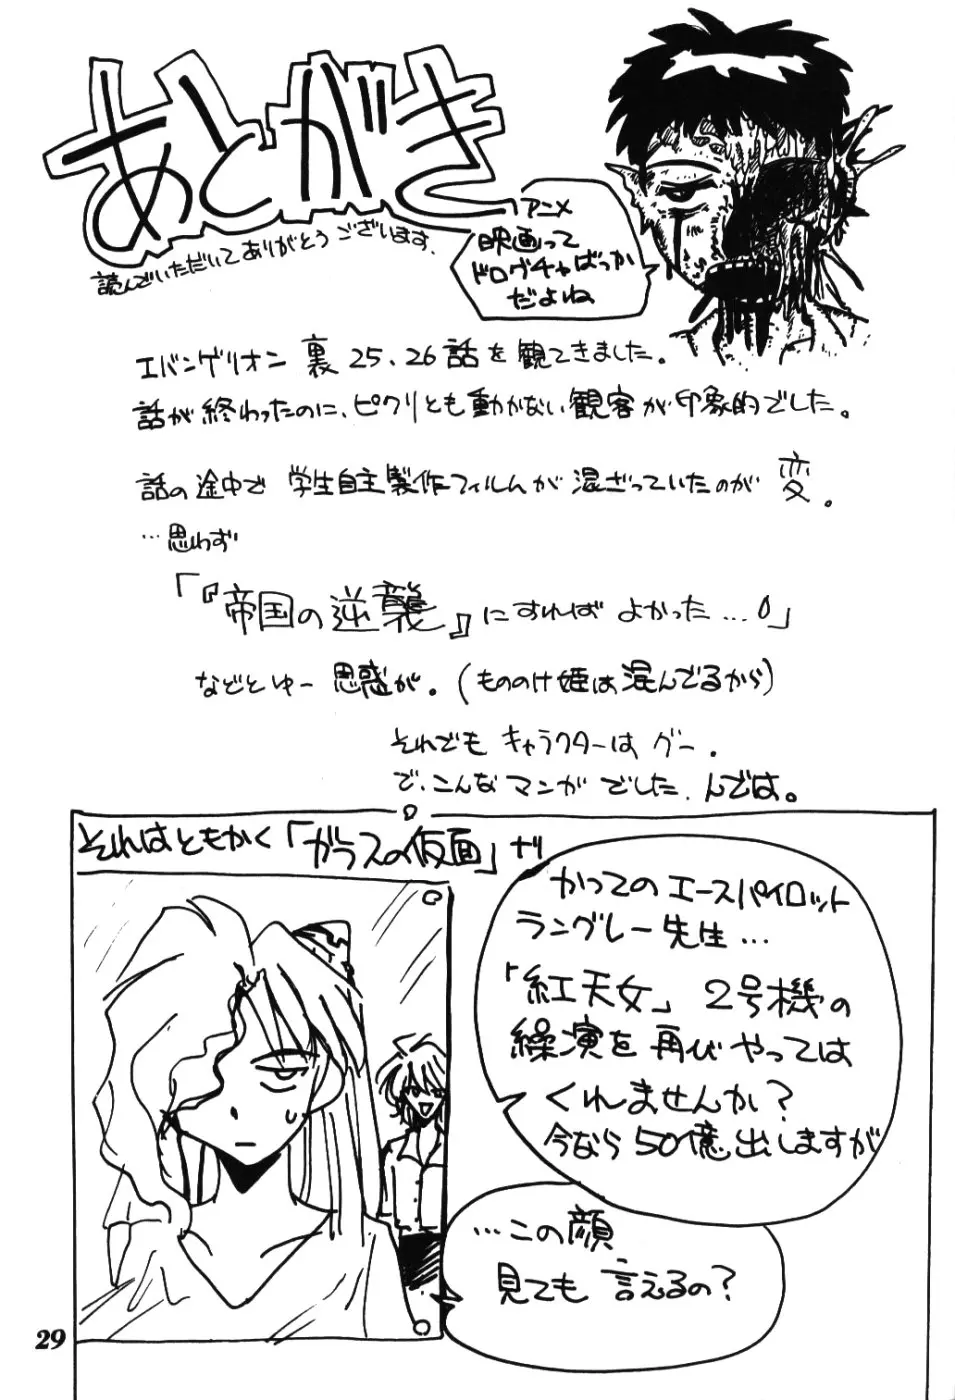 あとがき
読んでいただいてありがとうございます。
アニメ
映画って
ドログチャばっか
だよね
エバンゲリオン 裏25、26話を観てきました。
話が終わったのに、ピクリとも動かない観客が印象的でした。
話の途中で 学生自主製作フィルムが混ざっていたのが 変。
…思わず
「『帝国の逆襲』にすればよかった…」
などとゆー 思惑が。(もののけ姫は混んでるから)
それでも キャラクターはグー。
で、こんなマンガでした。んでは。
それはともかく「ガラスの仮面」ﾅﾘ
かってのエースパイロット
ラングレー先生…
「紅天女」2号機の
操演を再びやっては
くれませんか?
今なら50億出しますが
…この顔
見ても 言えるの?
29